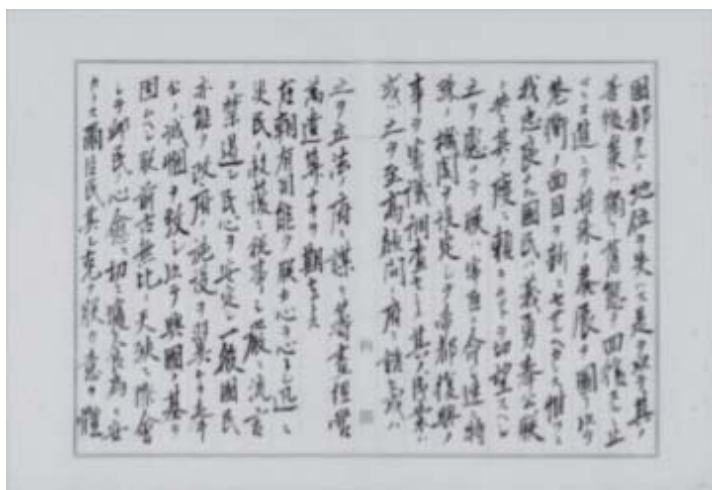 國都タルノ地位ヲ失ハス是ヲ以テ其ノ
善後策ハ獨リ舊態ヲ回復スルニ止
マラス進ンテ將來ノ發展ヲ圖リ以テ
巷衢ノ面目ヲ新ニセサルヘカラス惟フニ
我忠良ナル國民ハ義勇奉公朕
ト共ニ其ノ慶ニ賴ラムコトヲ切望スヘシ
之ヲ慮リテ朕ハ宰臣ニ命シ速ニ特
殊ノ機關ヲ設定シテ帝都復興ノ
事ヲ審議調査セシメ其ノ成案ハ
或ハ之ヲ至高顧問ノ府ニ諮ヒ或ハ
之ヲ立法ノ府ニ謀リ籌畫經營
萬遺算ナキヲ期セムトス
在朝有司能ク朕カ心ヲ心トシ迅ニ
災民ノ救護ニ從事シ嚴ニ流言
ヲ禁遏シ民心ヲ安定シ一般國民
亦能ク政府ノ施設ヲ翼ケテ奉
公ノ誠悃ヲ致シ以テ興國ノ基ヲ
固ムヘシ朕前古無比ノ天殃ニ際會
シテ卹民ノ心愈〻切ニ寢食爲ニ安
カラス爾臣民其レ克ク朕カ意ヲ體